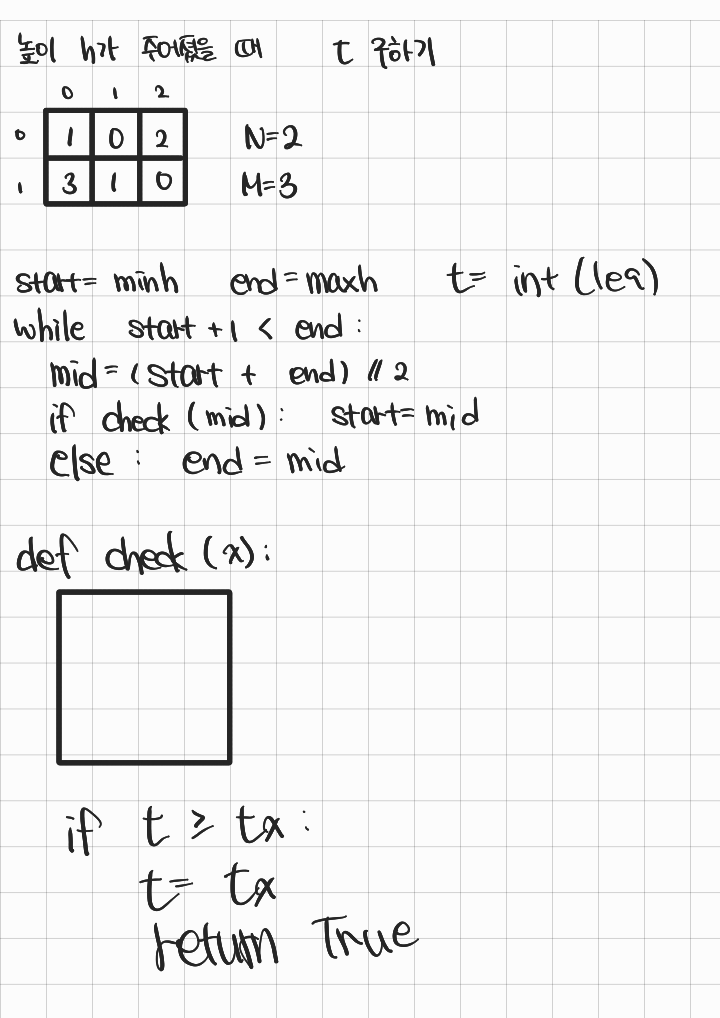 높이 h가 주어졌을 때 t 구하기
0 1 2
0 1 0 2 N=2
1 3 1 0 M=3
start= minh end=maxh t= int(1e9)
while start +1 < end:
mid=(start + end) // 2
if check (mid): start=mid
else : end = mid
def check (x):
if t ≥ tx :
t= tx
return True